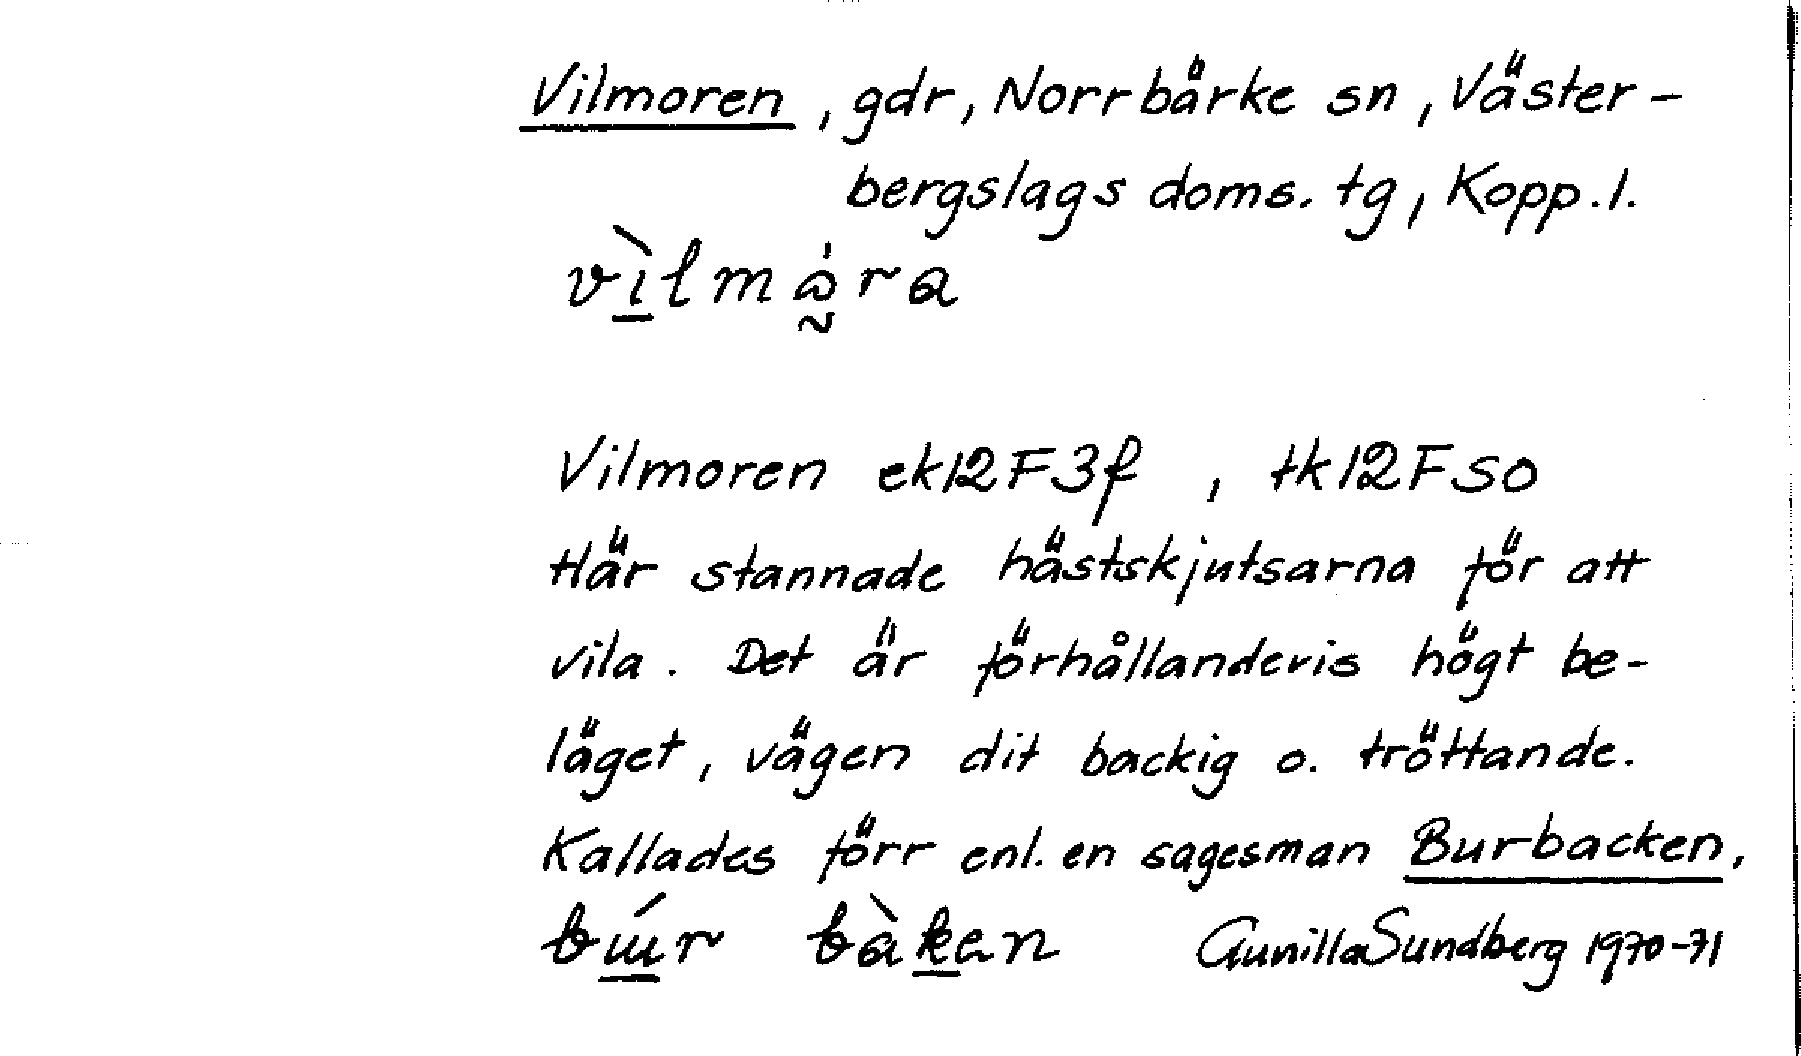 Vilmoren, gdr, Norrbärke sn, Väster-
bergslags doms. tg, Kopp. l.
Vilmoren ek12F3f, tk12FSO
Här stannade hästskjutsarna för att
vila. Det är förhållandevis högt be-
läget, vägen dit backig o. tröttande.
Kallades förr enl. en sagesman Burbacken,
Gunilla Sundberg 1970-71